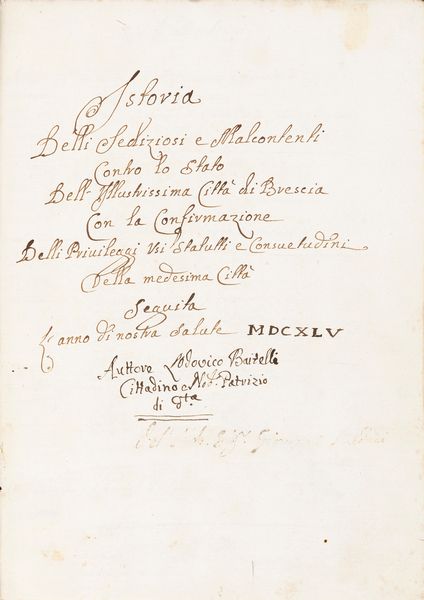 Istoria
Delli Sediziosi e Malcontenti
Contro lo Stato
Dell' Illustrissima Città di Brescia
Con la Confirmazione
Delli Privileggi Usi Statutti e Consuetudini
Della medesima Città
Seguita
L'anno di nostra salute MDCXLV
Auttore Lodovico Baitelli
Cittadino e Nob. Patrizio
di qta